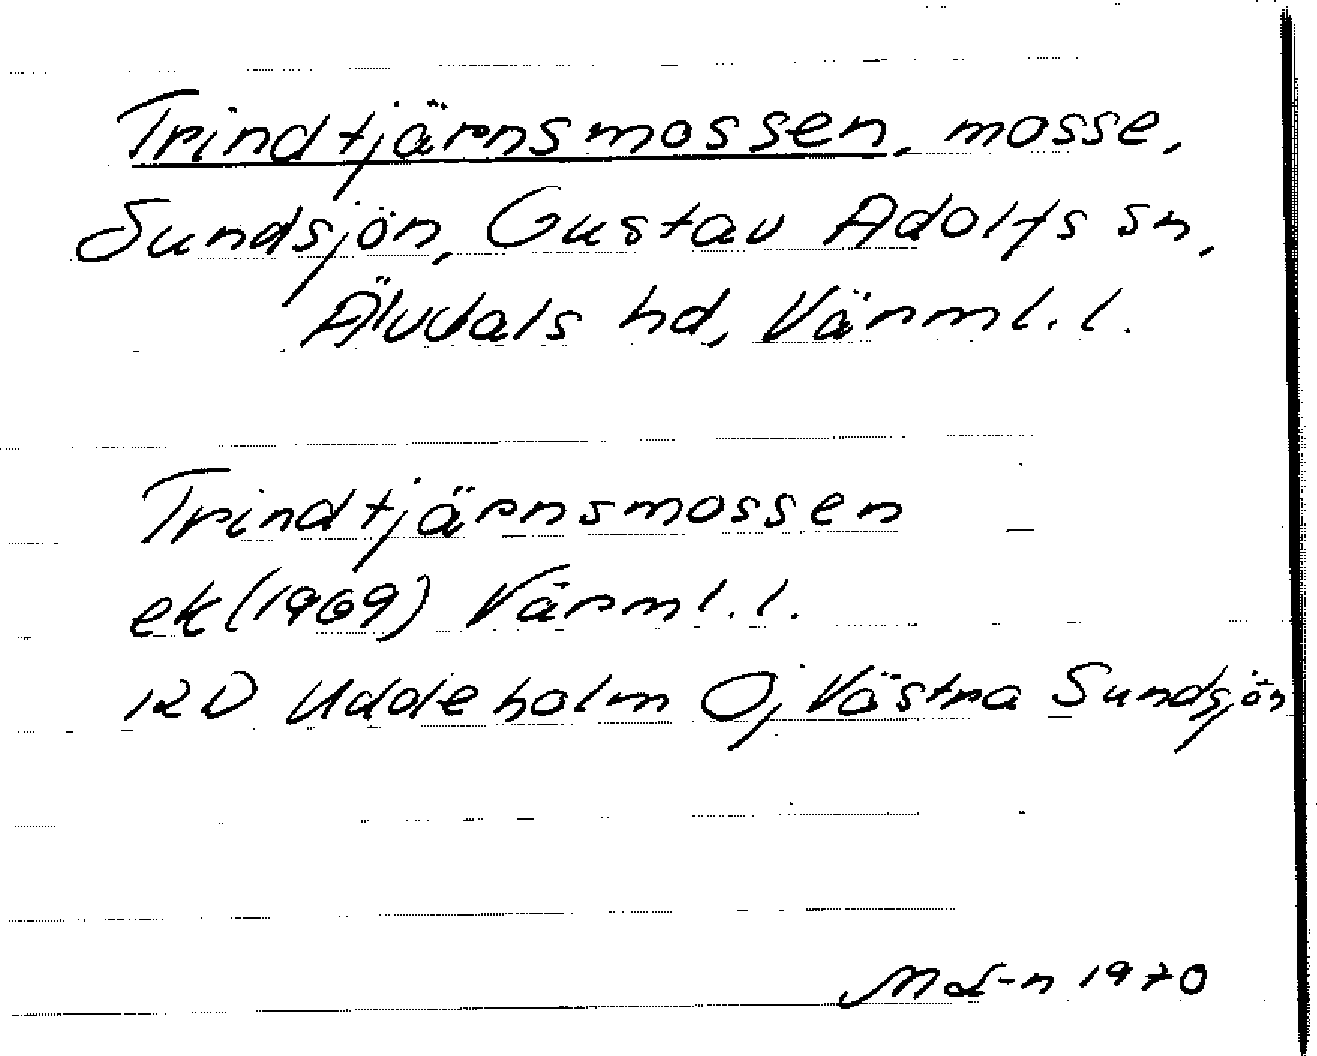 Trindtjärnsmossen, mosse,
Sundsjön, Gustav Adolfs sn,
Älvdals hd, Värml. l.
Trindtjärnsmossen
ek (1969) Värml. l.
12D Uddeholm 0j Västra Sundsjön
M L-n 1970